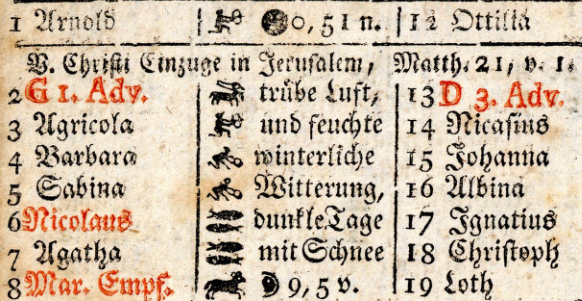 1 Arnold 0, 51 n. 12 Ottilia
V. Christi Einzuge in Jerusalem, Matth. 21, v. 1.
2 G 1. Adv. trübe Luft, 13 D 3. Adv.
3 Agricola und feuchte 14 Nicasius
4 Barbara winterliche 15 Johanna
5 Sabina Witterung, 16 Albina
6 Nicolaus dunkle Tage 17 Ignatius
7 Agatha mit Schnee 18 Christoph
8 Mar. Empf. 9, 5 v. 19 Loth